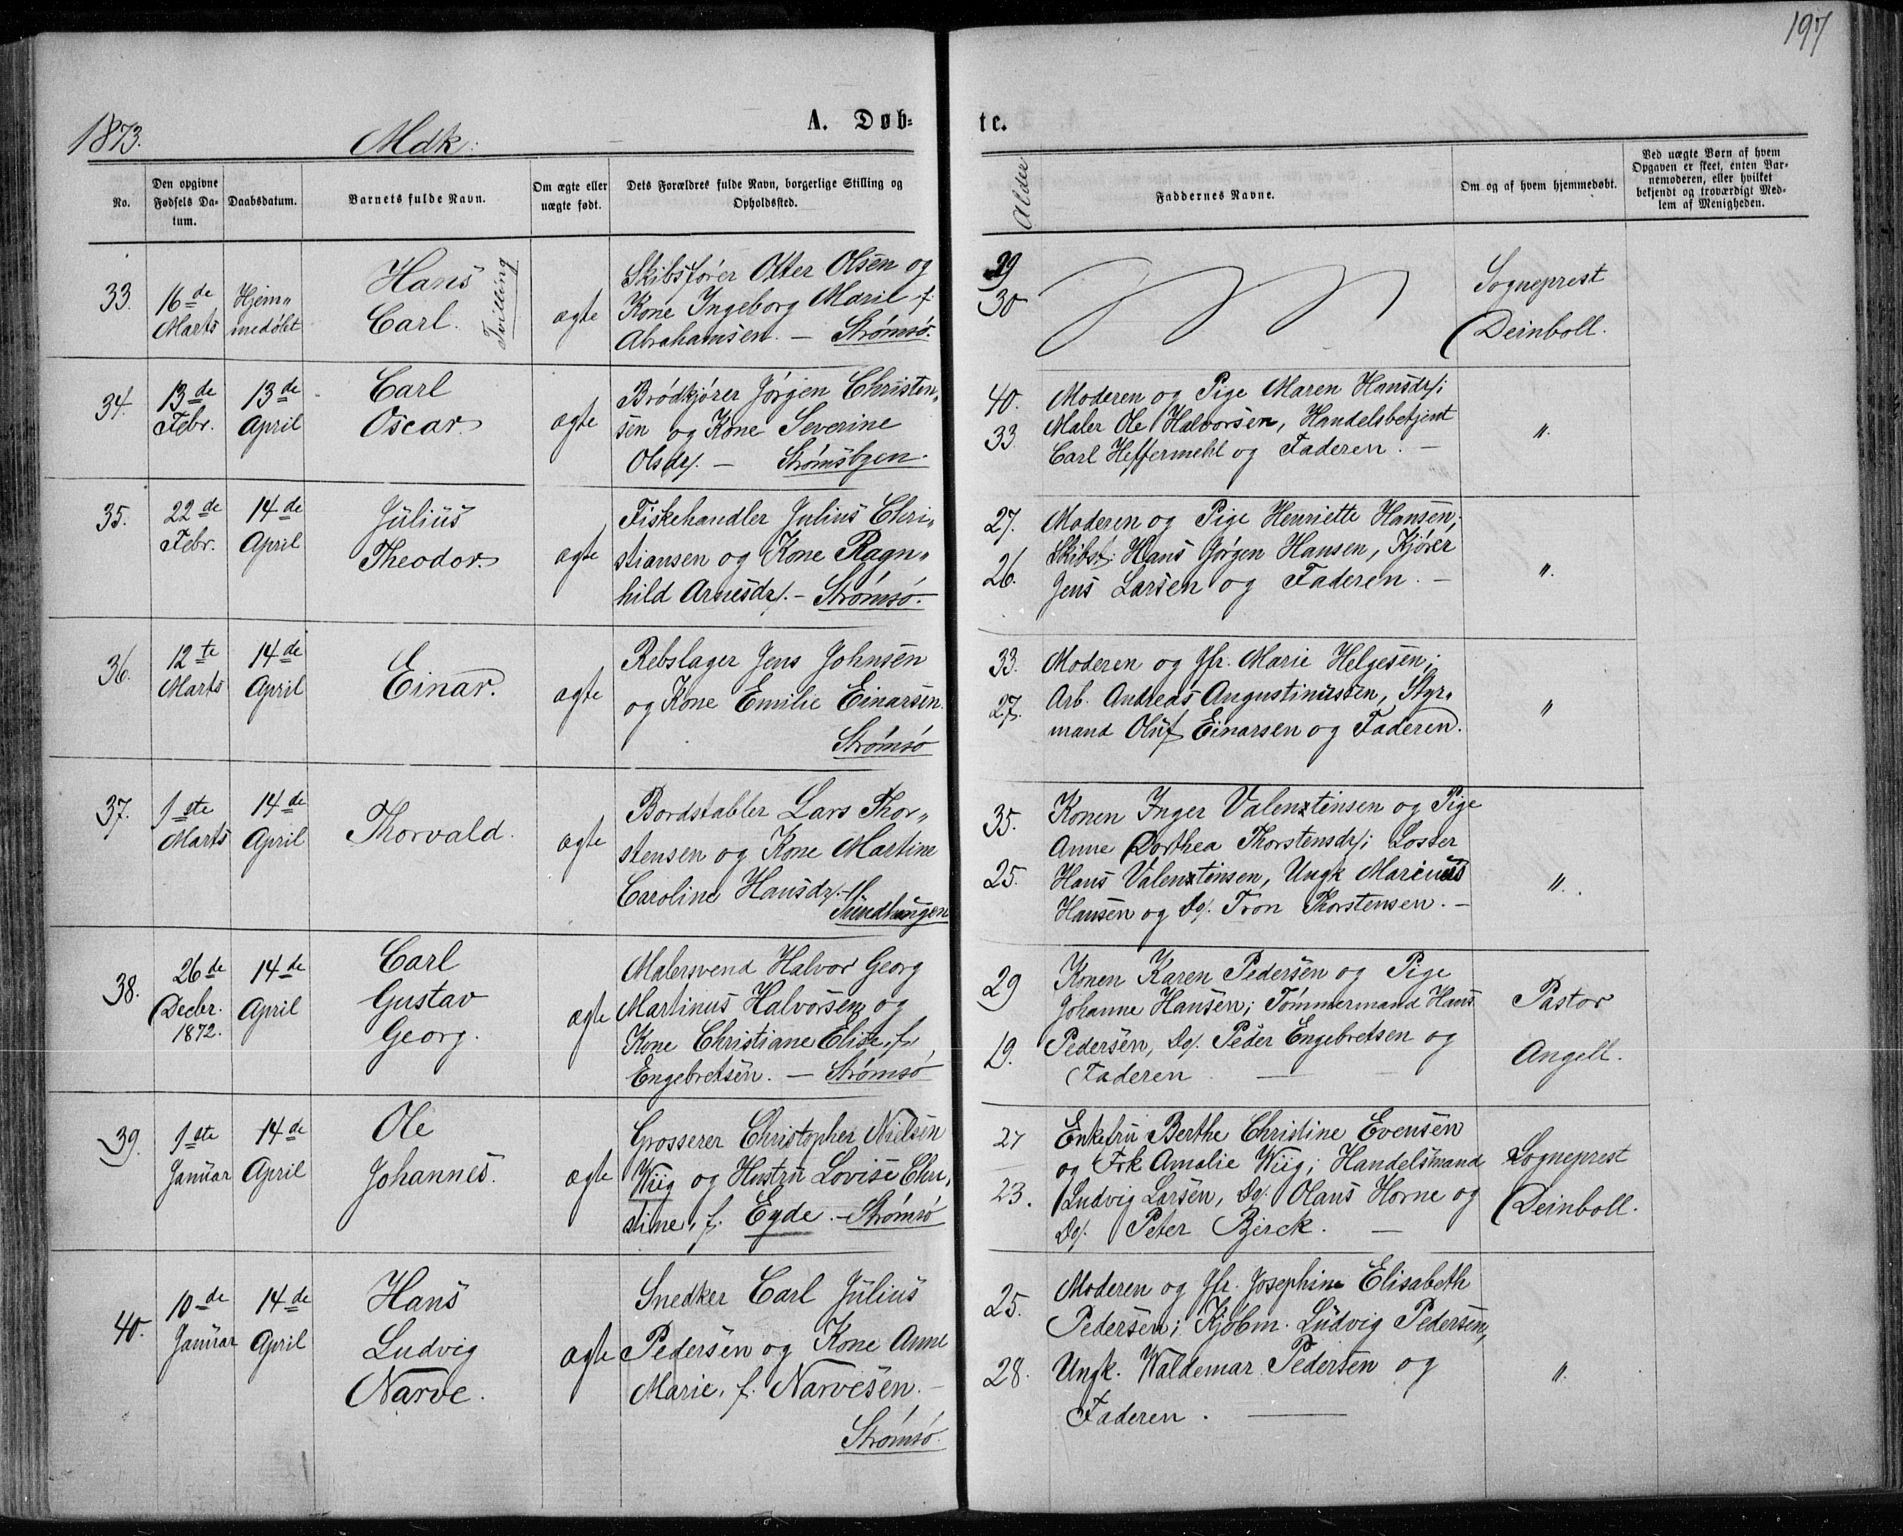 197
1873.
Mdk:
A. Døb-
te.
No.
Den opgivne
Fødsels Da-
tum.
Daabsdatum.
Barnets fulde Navn.
Om ægte eller
uægte født.
Dets Forældres fulde Navn, borgerlige Stilling og
Opholdssted.
Alder
Faddernes Navne.
Om og af hvem hjemmedøbt.
Ved uægte Børn af hvem
Opgaven er skeet, enten Bar-
nemoderen, eller hvilket
bekjendt og troværdigt Med-
lem af Menigheden.
33.
16de
Marts
Hjem„
medøbt
Hans
Carl.
Tvilling
ægte
Skibsfører Otter Olsen og
Kone Ingeborg Marie f.
Abrahamsen. — Strømsø.
29
30
Sogneprest
Deinboll.
34.
13de
Febr.
13de
April
Carl
Oscar.
ægte
Brødkjører Jørgen Christen„
sen og Kone Severine
Olsdr. — Strømsbyen.
40.
33.
Moderen og Pige Maren Hansdr;
Maler Ole Halvorsen, Handelsbetjent
Carl Heffermehl og Faderen. —
„
35.
22de
Febr.
14de
April
Julius
Theodor.
ægte
Fiskehandler Julius Chri„
stiansen og Kone Ragn„
hild Arnesdr. — Strømsø.
27.
26.
Moderen og Pige Henriette Hansen;
Skibst. Hans Jørgen Hansen, Kjører
Jens Larsen og Faderen. —
„
36.
12te
Marts
14de
April
Einar.
ægte
Rebslager Jens Johnsen
og Kone Emilie Einarsen.
Strømsø
33.
27.
Moderen og Jfr. Marie Helgesen;
Arb. Andreas Augustinussen, Styr„
mand Oluf Einarsen og Faderen.
„
37.
1ste
Marts
14de
April
Thorvald.
ægte
Bordstabler Lars Thor„
stensen og Kone Martine
Caroline Hansdr. —
Tundhaugen
35.
25.
Konen Inger Valentinsen og Pige
Anne Dorthea Thorstensdr; Losser
Hans Valentinsen, Ungk Marinus
Hansen og Do. Tron Thorstensen. —
„
38.
26de
Decbr.
1872.
14de
April
Carl
Gustav
Georg.
ægte
Malersvend Halvor Georg
Martinus Halvorsen og
Kone Christiane Elise, f.
Engebretsen. — Strømsø
29
19.
Konen Karen Pedersen og Pige
Johanne Hansen; Tømmermand Hans
Pedersen, Do. Peder Engebretsen og
Faderen
Pastor
Angell.
39.
1ste
Januar
14de
April
Ole
Johannes.
ægte
Grosserer Christopher Nielsen
Wiig og Hustru Lovise Chri„
stine, f. Eyde. — Strømsø
27
23.
Enkefru Berthe Christine Evensen
og Frk Amalie Wiig; Handelsmand
Ludvig Larsen, Do. Olaus Horne og
Do. Peter Bjerck. —
Sogneprest
Deinboll.
40.
10de
Januar
14de
April
Hans
Ludvig
Narve.
ægte
Snedker Carl Julius
Pedersen og Kone Anne
Marie, f. Narvesen. —
Strømsø.
25.
28.
Moderen og Jfr. Josephine Elisabeth
Pedersen; Kjøbm. Ludvig Pedersen,
Ungk. Waldemar Pedersen og
Faderen. —
„